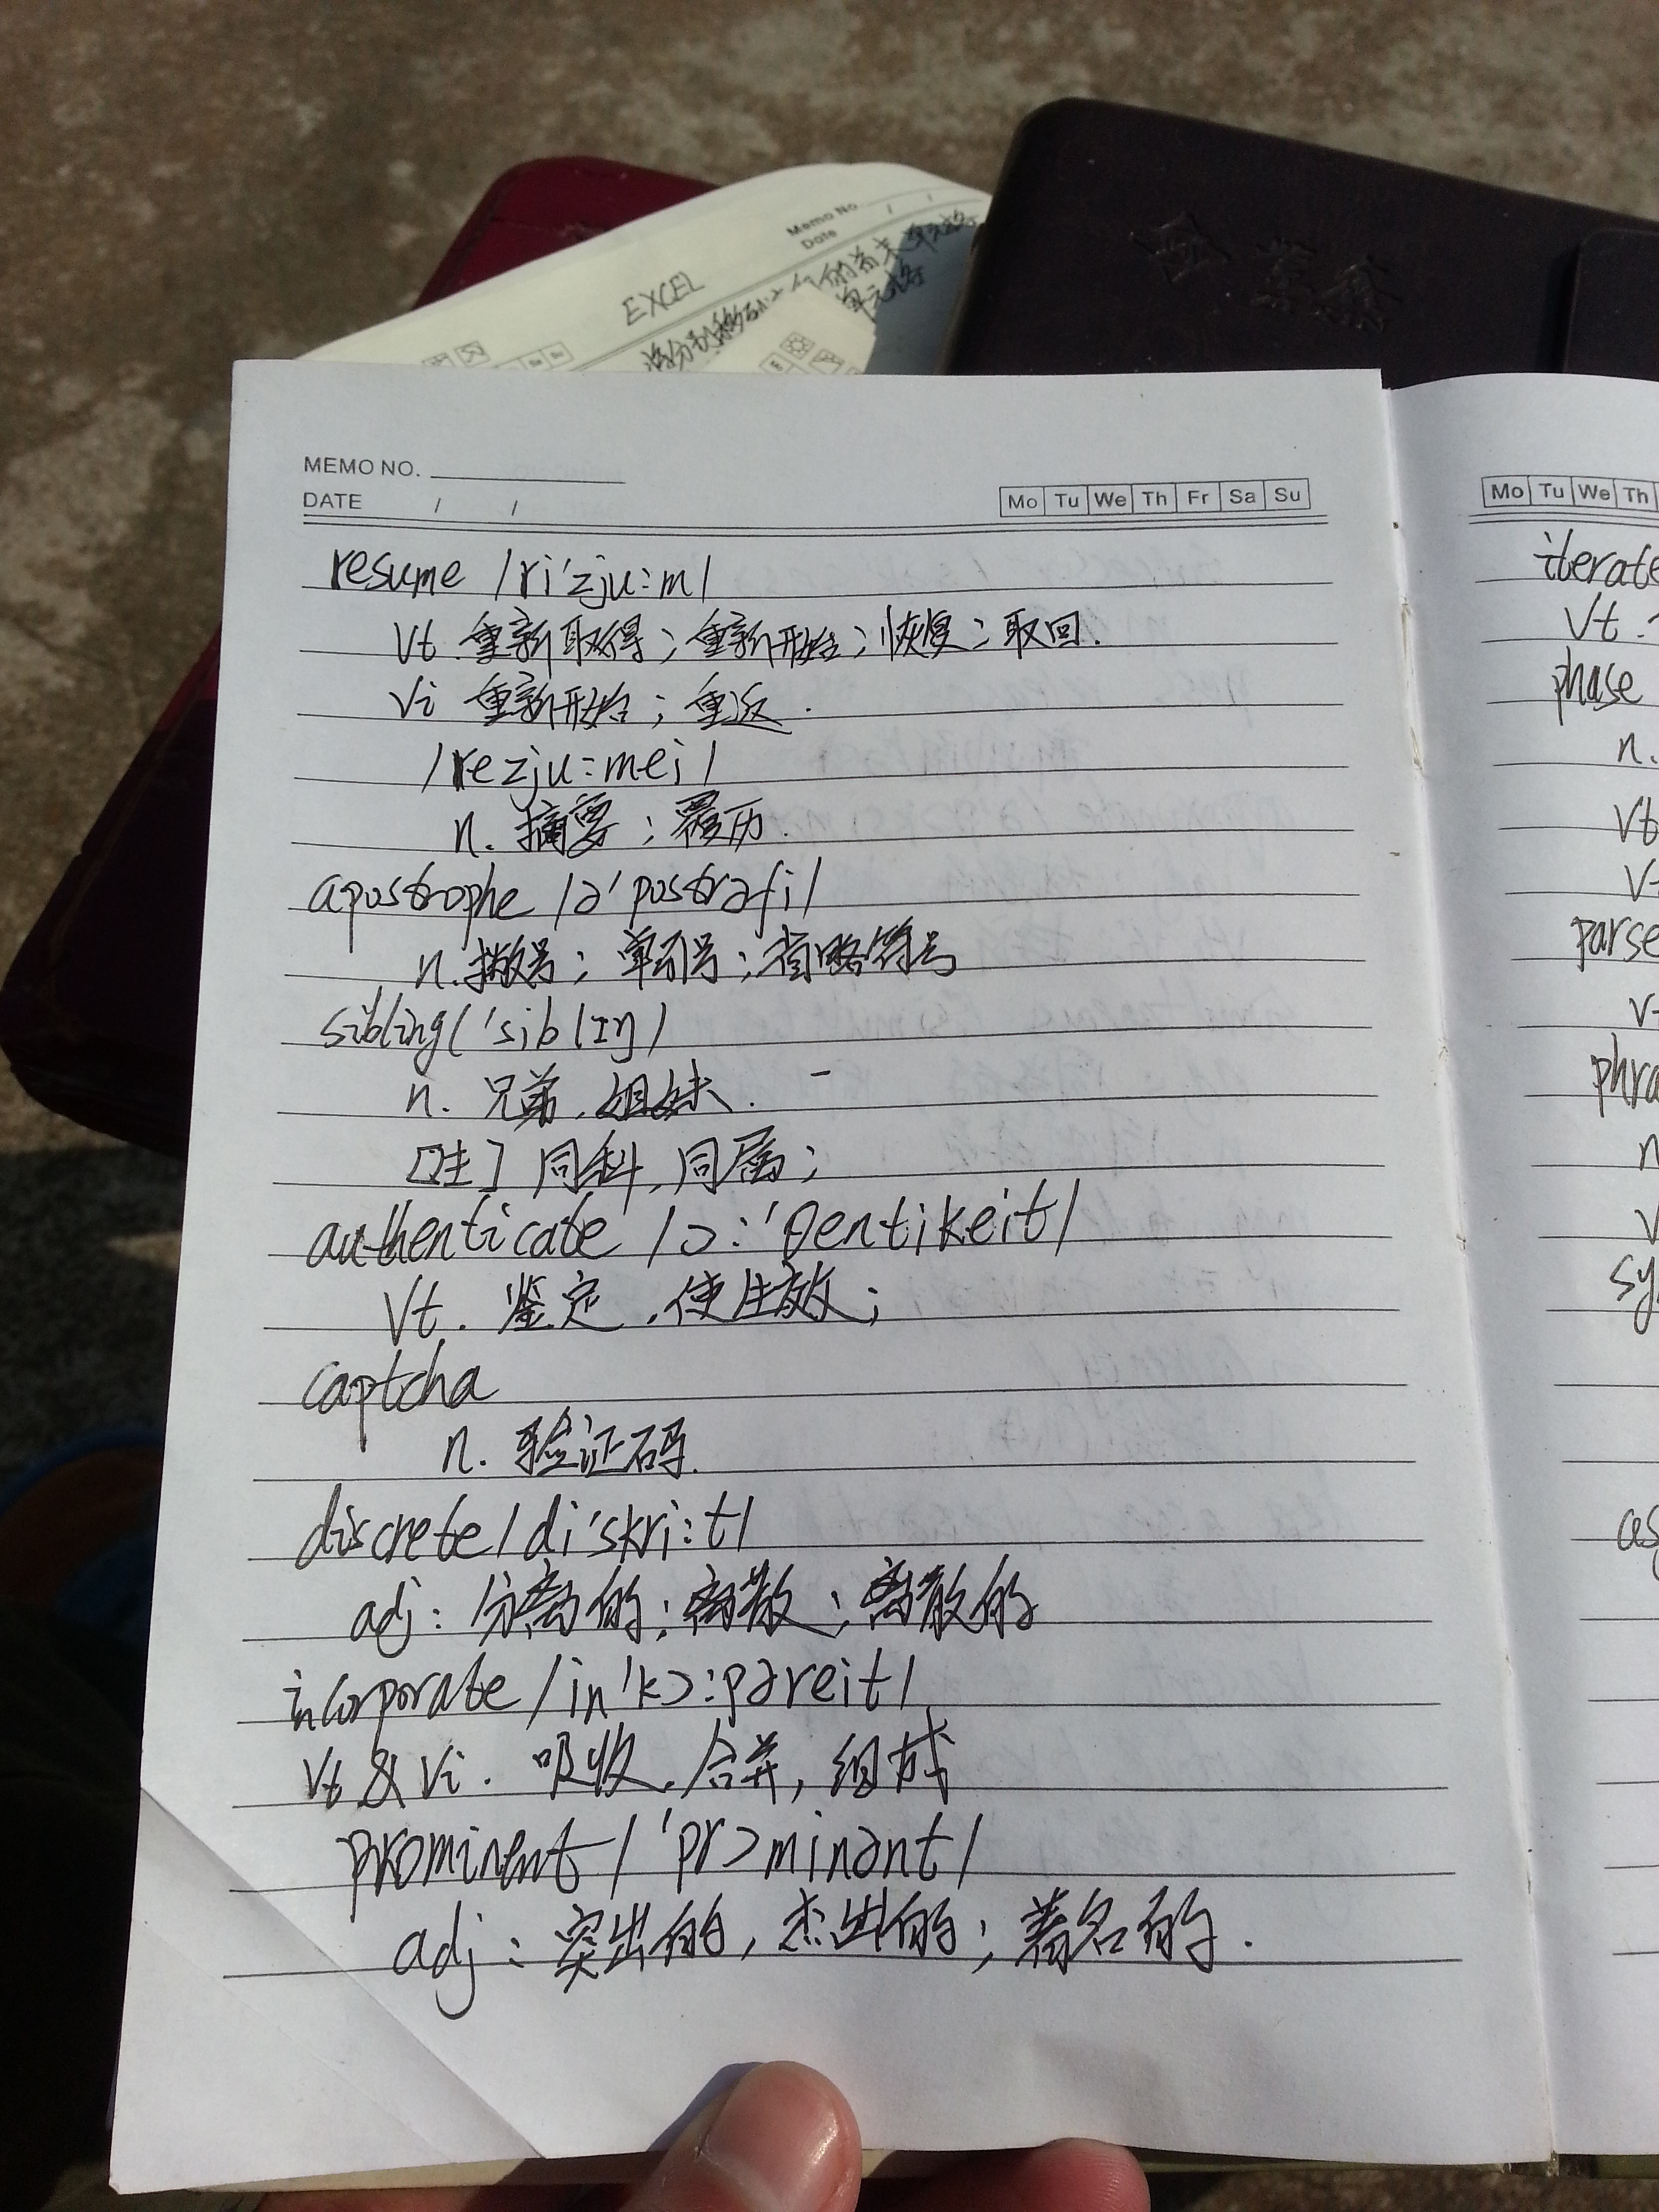 Memo No.
Date / /
EXCEL
单元格
MEMO NO.
DATE / /
Mo Tu We Th Fr Sa Su
resume /ri'zju:m/
Vt. 重新取得；重新开始；恢复；取回.
Vi 重新开始；重返.
/rezju:mei/
n. 摘要；履历.
apostrophe /ə'postrəfi/
n. 撇号；单引号；省略符号
sibling('siblIŋ/
n. 兄弟,姐妹.
[生] 同科,同属；
authenticate /ɔ:'θentikeit/
Vt. 鉴定,使生效；
captcha
n. 验证码.
discrete/di'skri:t/
adj: 分离的；离散；离散的
incorporate /in'kɔ:pəreit/
Vt & Vi. 吸收,合并,组成
prominent /'prɔminənt/
adj: 突出的,杰出的；著名的.
Mo Tu We Th
iterate
Vt.
phase
n.
Vt
V
parse
V
phra
n
V
sy
as